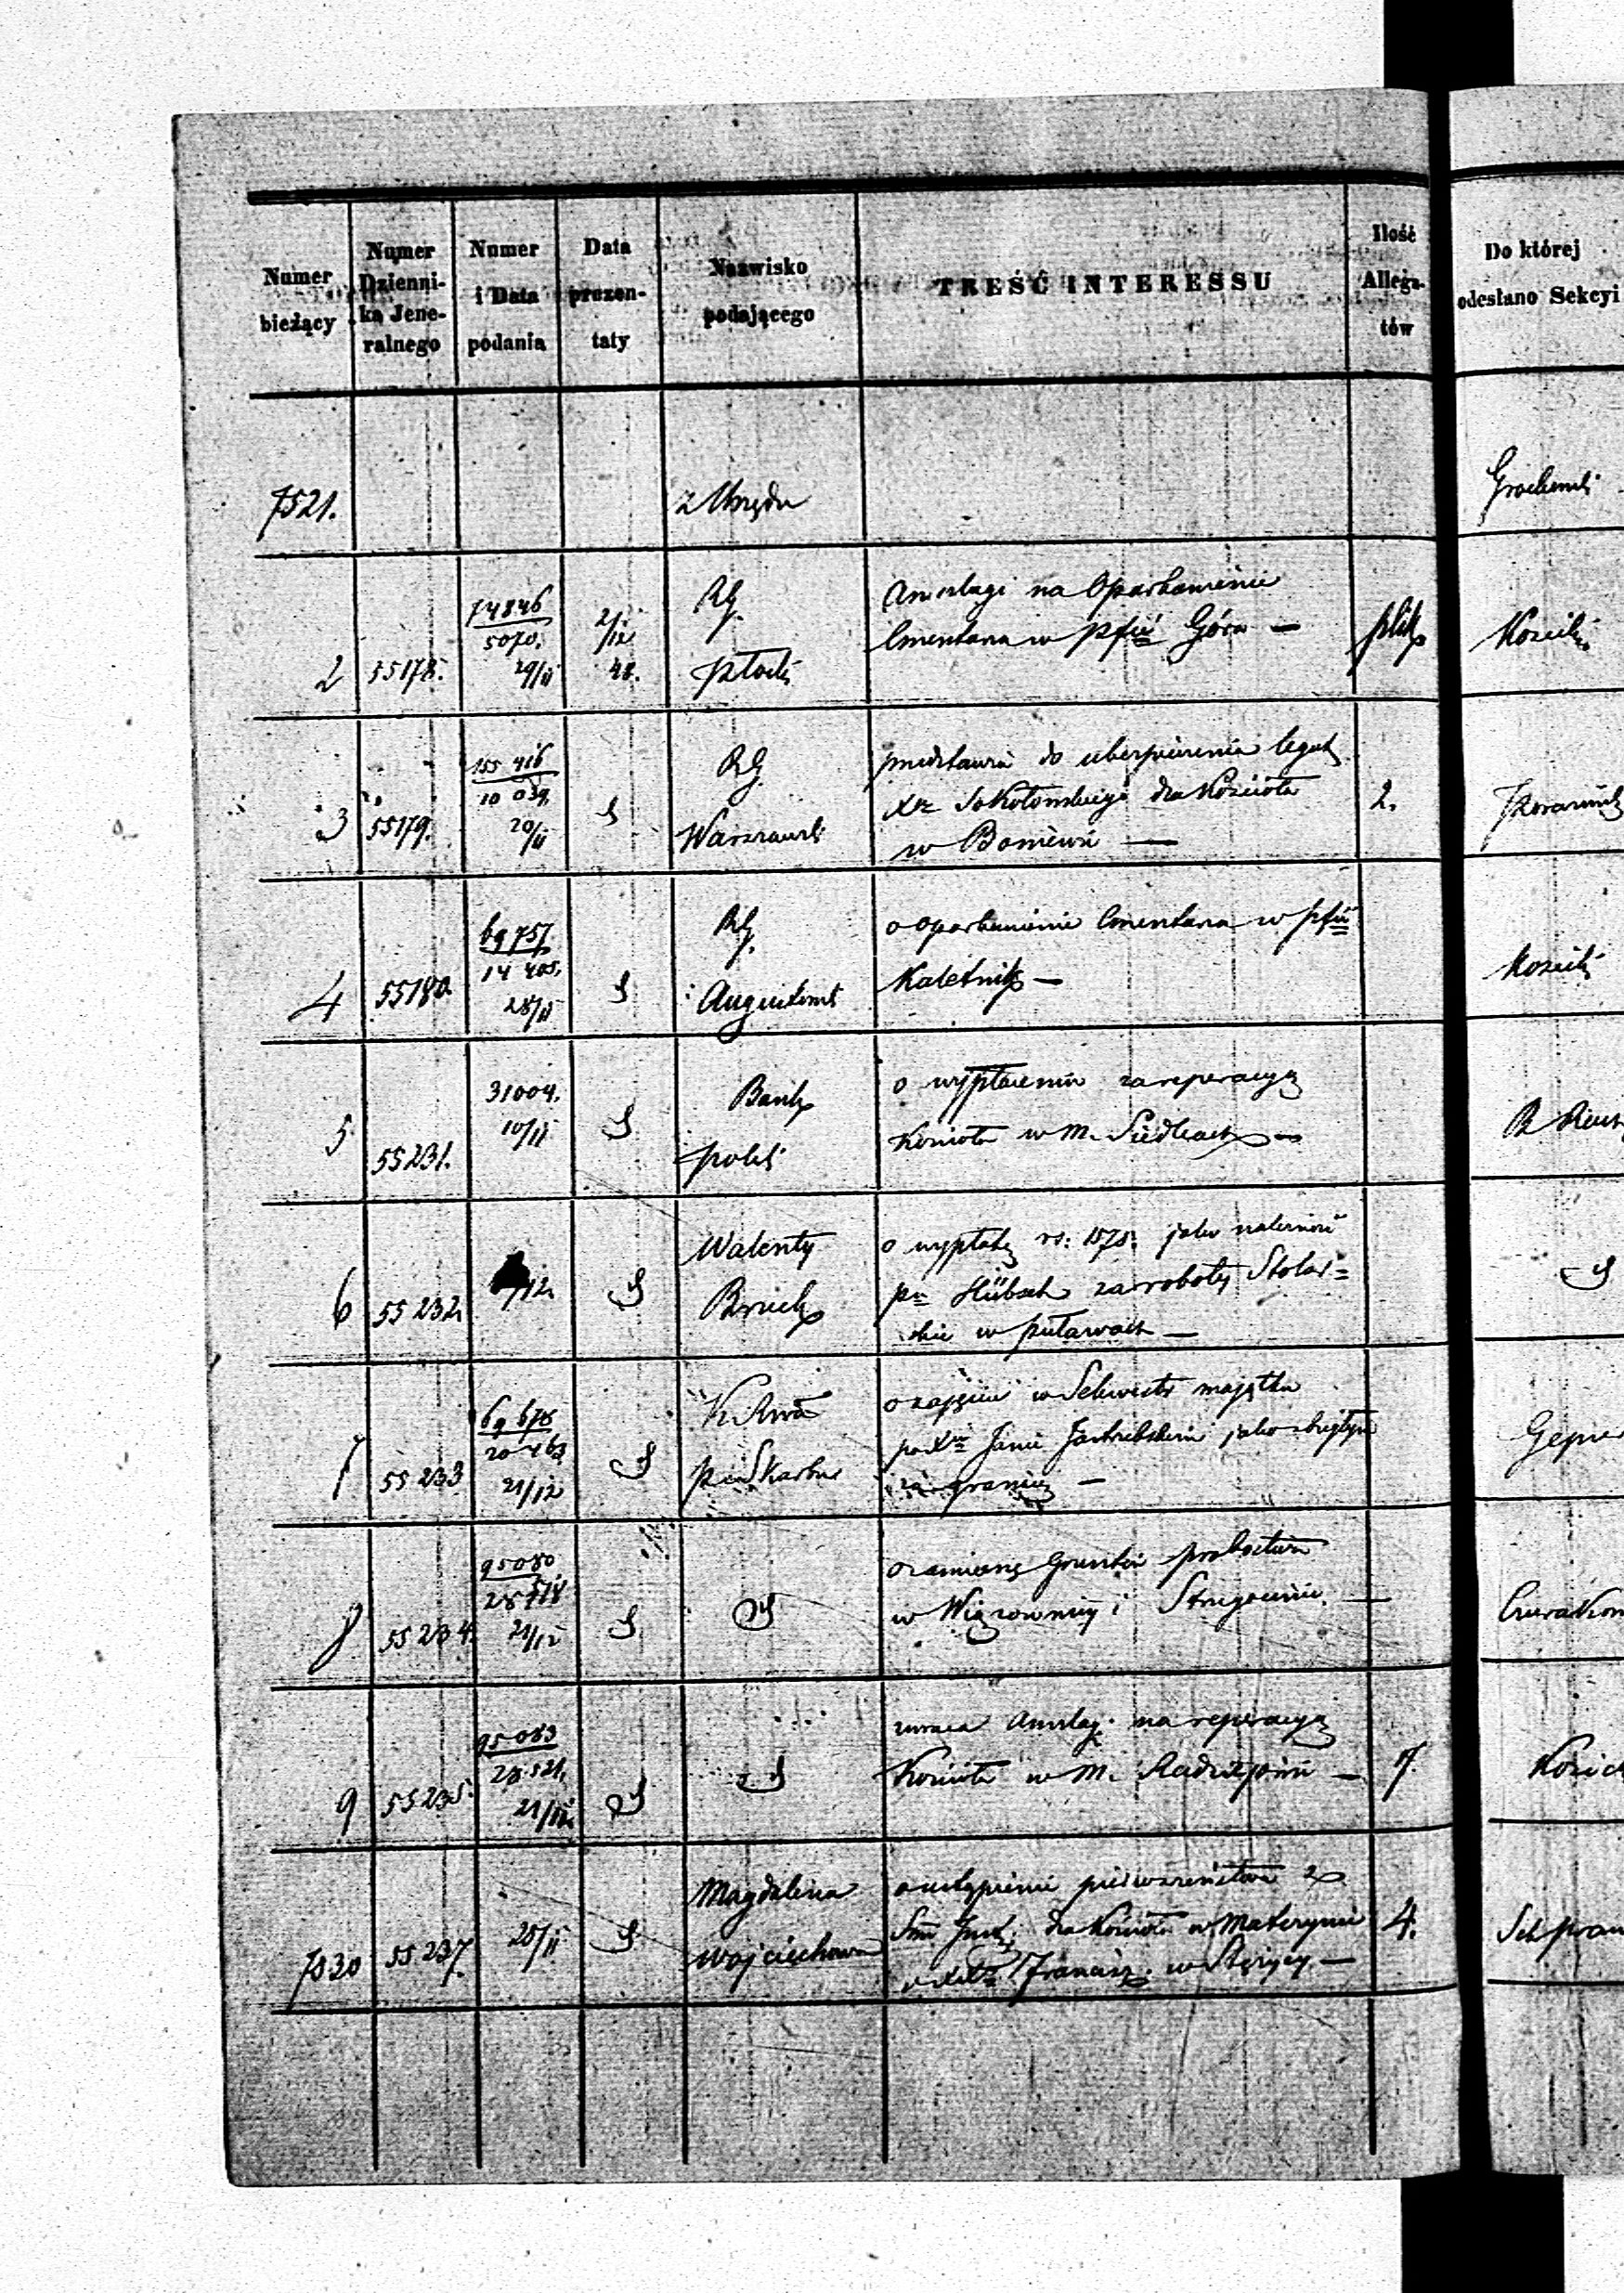 Numer bieżący
Numer Dzienni- ka Jene- ralnego
Numer i Data podania
Data prezen- taty
Nazwisko podającego
TREŚĆ INTERESSU
Ilość Allega- tów
Do której odesłano Sekcyi
7521.
z Urzędu
2
55178.
74846
5070.
29/11
2/12
48.
RG.
Płocki
na Oparkanienie
Cmentarza w pfii Góra —
plik
3
55179.
155 416
10 039
20/11
RG.
Warszawski
do ubezpieczenia legat
Xa Sokołowskiego dla Kościoła
w Boniewie —
2.
4
55180
69757
14 405.
28/11
RG.
Augustows
o oparkanienie Cmentarza w pfii
Kaletnik —
5
55231.
31004.
10/11
Bank
polski
o wypłacenie za reperacyą
Kościoła w M. Siedlcach —
6
55232
/12
Walenty
o wypłatę rs: 1575: jako należność
po Hübsch za roboty Stolar=
skie w puławach —
7
55233
69 678
20 463
21/12
Skarbu
o zajęcie w Sekwestr majątku
po Xu Janie Jastrzebskim jako zbiegłym
za granicę —
8
55234.
95080
28518
21/12
o zamianę Gruntów probostwa
w Wiązowny i
9
55235.
95083
28 521,
21/12
zwraca na reperacyą
Kościoła w M. Radzyminie —
7.
7530
55237.
25/11
Magdalena
Wojciechowa
o ustąpienie pierwszeństwa
dla Kościoła w
Francisz. w Stężycy —
4.